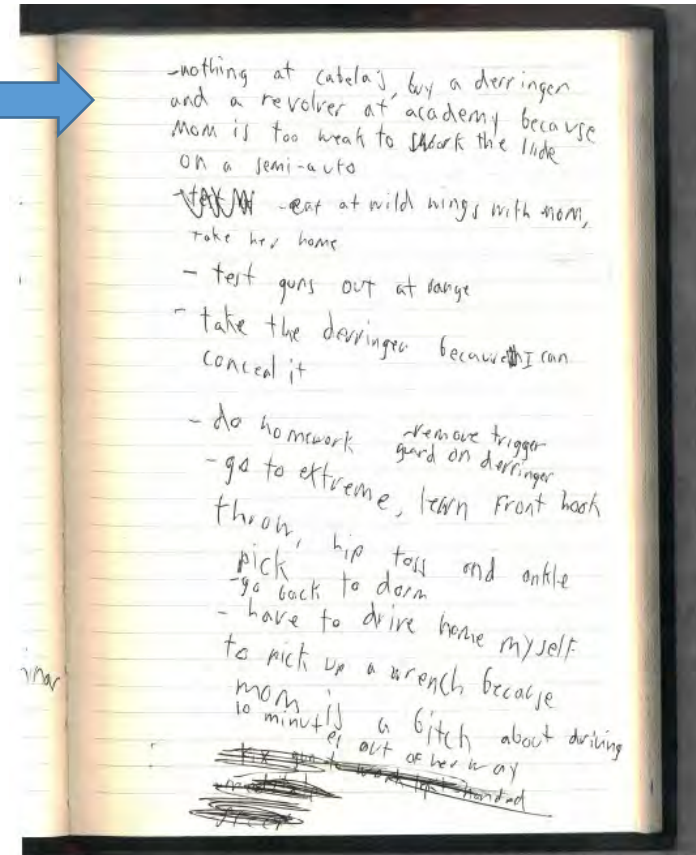 -nothing at cabela's, buy a derringer
and a revolver at academy because
Mom is too weak to work the slide
on a semi-auto
-eat at wild wings with mom,
take her home
- test guns out at range
- take the derringer because I can
conceal it
- do homework
-remove trigger
guard on derringer
- go to extreme, learn front hook
throw, hip toss and ankle
pick
-go back to dorm
- have to drive home myself
to pick up a wrench because
mom is a bitch about driving
10 minutes out of her way